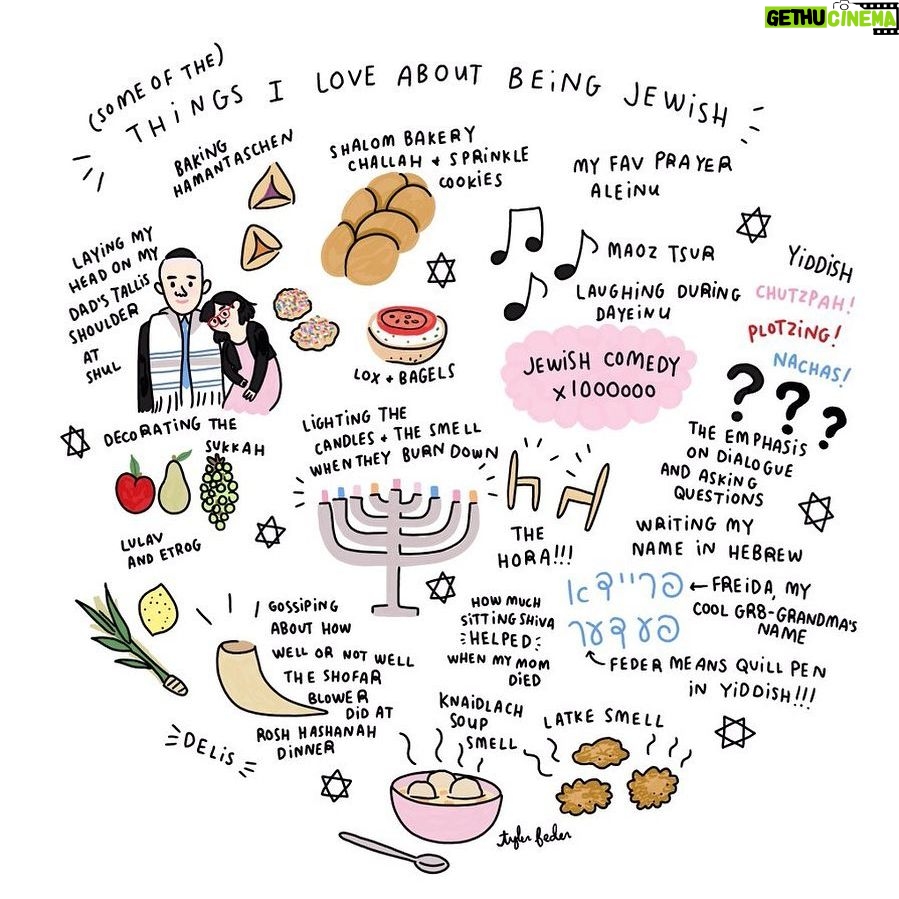 GETHUCINEMA
(SOME OF THE)
THINGS I LOVE ABOUT BEING JEWISH
BAKING
HAMANTASCHEN
SHALOM BAKERY
CHALLAH + SPRINKLE
COOKIES
MY FAV PRAYER
ALEINU
LAYING MY
HEAD ON MY
DAD'S TALLIS
SHOULDER
AT
SHUL
MAOZ TSUR
LAUGHING DURING
DAYEINU
YIDDISH
CHUTZPAH!
PLOTZING!
NACHAS!
LOX + BAGELS
JEWISH COMEDY
x1000000
???
THE EMPHASIS
ON DIALOGUE
AND ASKING
QUESTIONS
DECORATING THE
SUKKAH
LIGHTING THE
CANDLES + THE SMELL
WHEN THEY BURN DOWN
THE
HORA!!!
WRITING MY
NAME IN HEBREW
פריידא
פעדער
←FREIDA, MY
COOL GR8-GRANDMA'S
NAME
FEDER MEANS QUILL PEN
IN YIDDISH!!!
LULAV
AND ETROG
GOSSIPING
ABOUT HOW
WELL OR NOT WELL
THE SHOFAR
BLOWER
DID AT
ROSH HASHANAH
DINNER
HOW MUCH
SITTING SHIVA
HELPED
WHEN MY MOM
DIED
DELIS
KNAIDLACH
SOUP
SMELL
LATKE SMELL
tyler feder